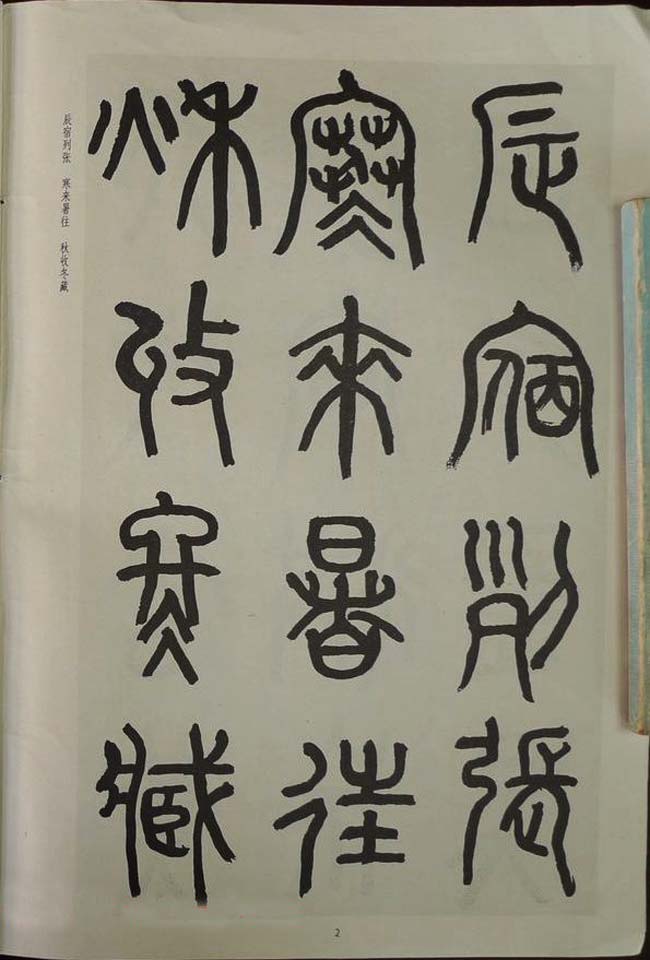 辰宿列張
寒來暑往
秋收冬藏
辰宿列张 寒来暑往 秋收冬藏
2